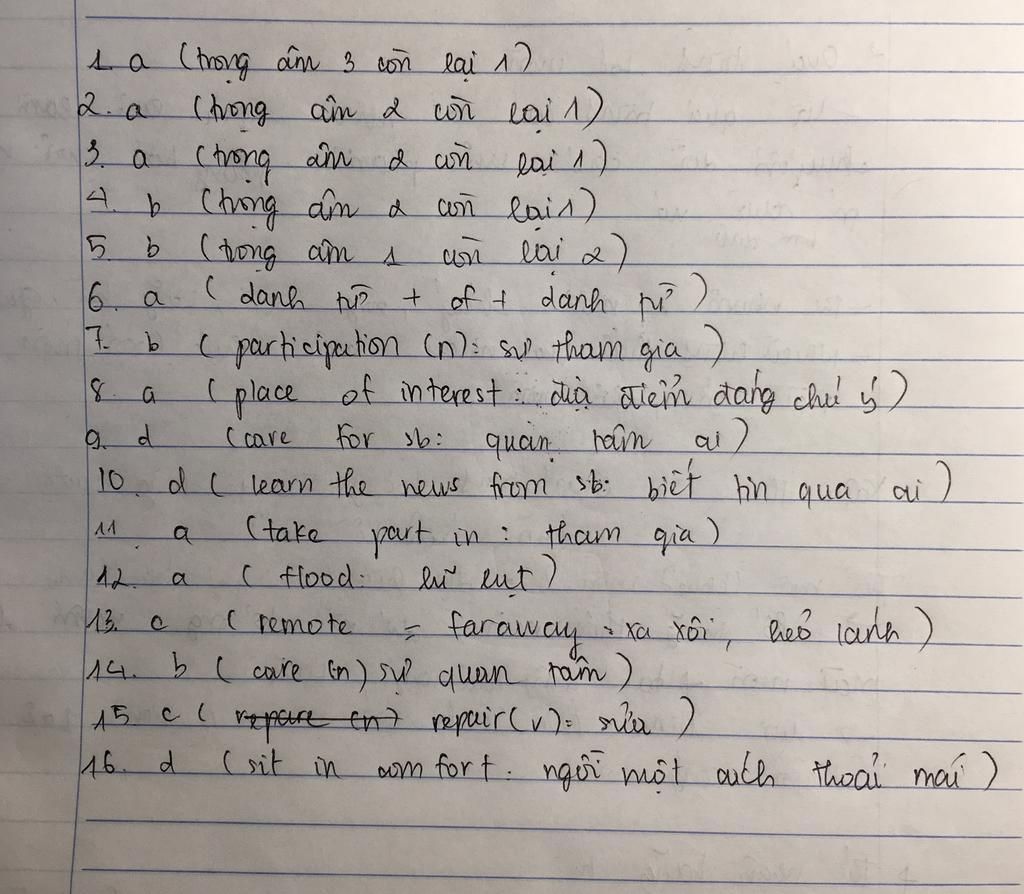 1. a (trọng âm 3 còn lại 1)
2. a (trọng âm 2 còn lại 1)
3. a (trọng âm 2 còn lại 1)
4. b (trọng âm 2 còn lại 1)
5. b (trọng âm 1 còn lại 2)
6. a (danh từ + of + danh từ)
7. b (participation (n): sự tham gia)
8. a (place of interest: địa điểm đáng chú ý)
9. d (care for sb: quan tâm ai)
10. d (learn the news from sb: biết tin qua ai)
11. a (take part in: tham gia)
12. a (flood: lũ lụt)
13. c (remote = faraway: xa xôi, hẻo lánh)
14. b (care (n) sự quan tâm)
15. c (repare (n) repair (v): sửa)
16. d (sit in comfort: ngồi một cách thoải mái)